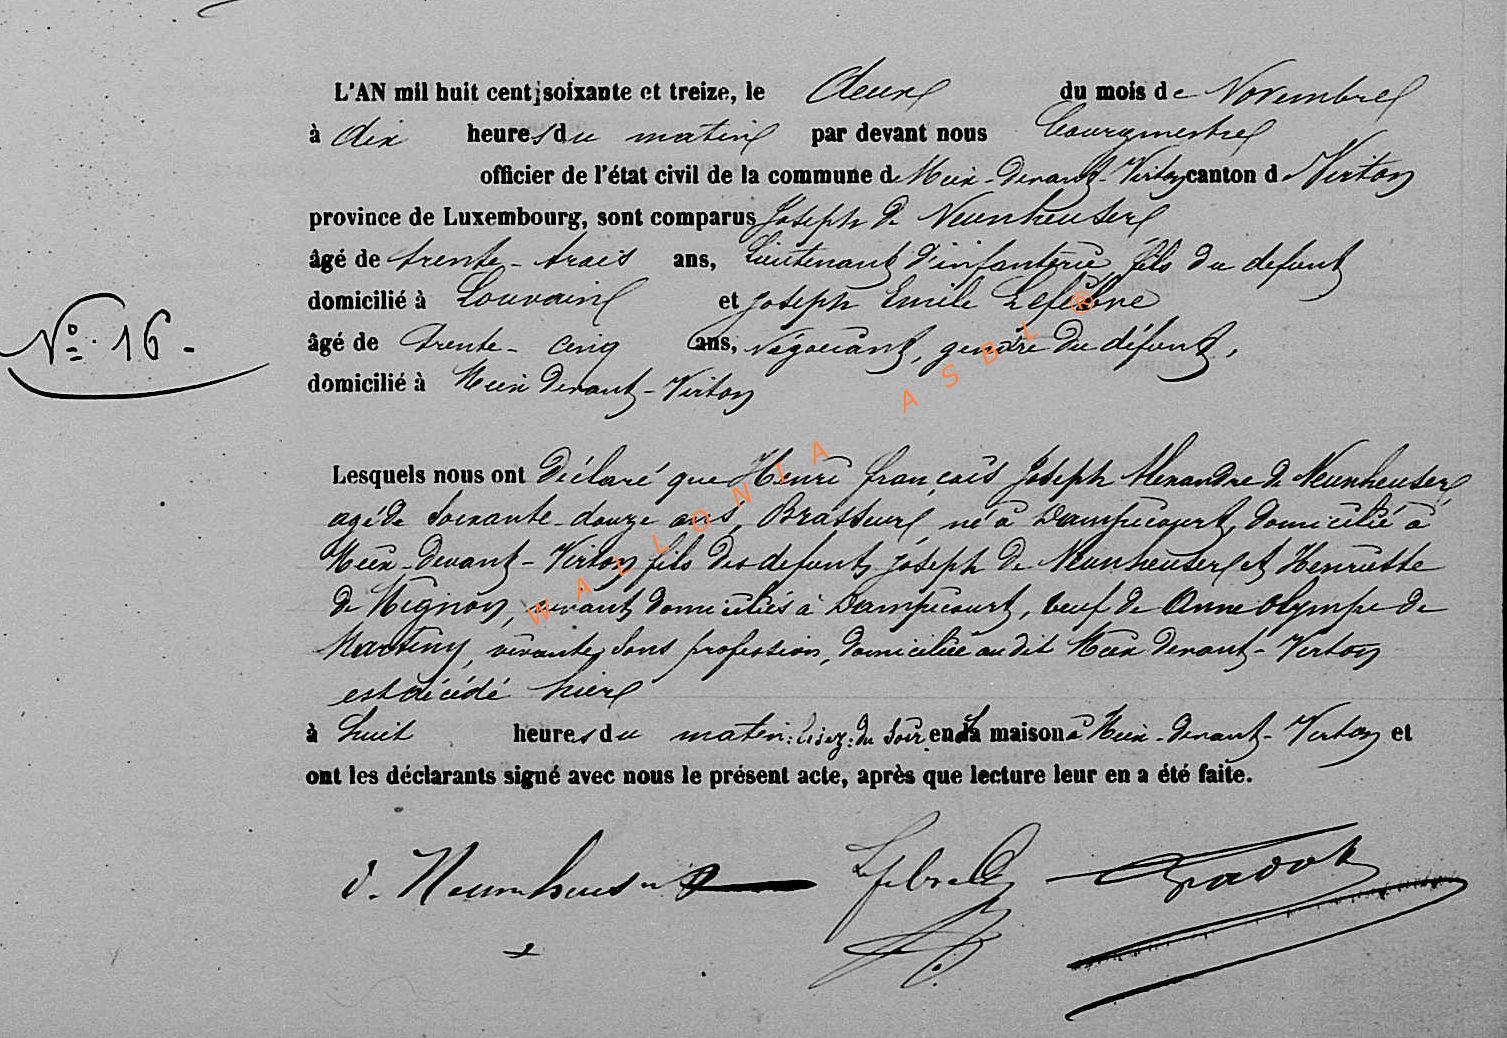 L'AN mil huit cent soixante et treize, le deux du mois de Novembre
à dix heures du matin par devant nous Bourgmestre
officier de l'état civil de la commune de Meix-devant-Virton canton de Virton
province de Luxembourg, sont comparus Joseph de Neunheuser
âgé de trente-trois ans, Lieutenant d'infanterie, fils du defunt
domicilié à Louvain et Joseph Emile Lefebvre
N° 16.
âgé de trente-cinq ans, négociant, gendre du défunt,
domicilié à Meix devant-Virton
Lesquels nous ont déclaré que Henri françois Joseph Alexandre de Neunheuser
agé de soixante-douze ans, Brasseur, né à Dampicourt, domicilié à
Meix-Devant-Virton fils des defunts Joseph de Neunheuser et Henriette
de Mignon, vivant domiciliés à Dampicourt, veuf de Anne Olympe de
Martiny, vivante, sans profession, domiciliée au dit Meix devant-Virton
est décédé hier
à huit heures du matin: lisez: du soir en la maison à Meix-devant-Virton et
ont les déclarants signé avec nous le présent acte, après que lecture leur en a été faite.
d. Neunheuser Lefebvre
WALLONIA ASBL ®